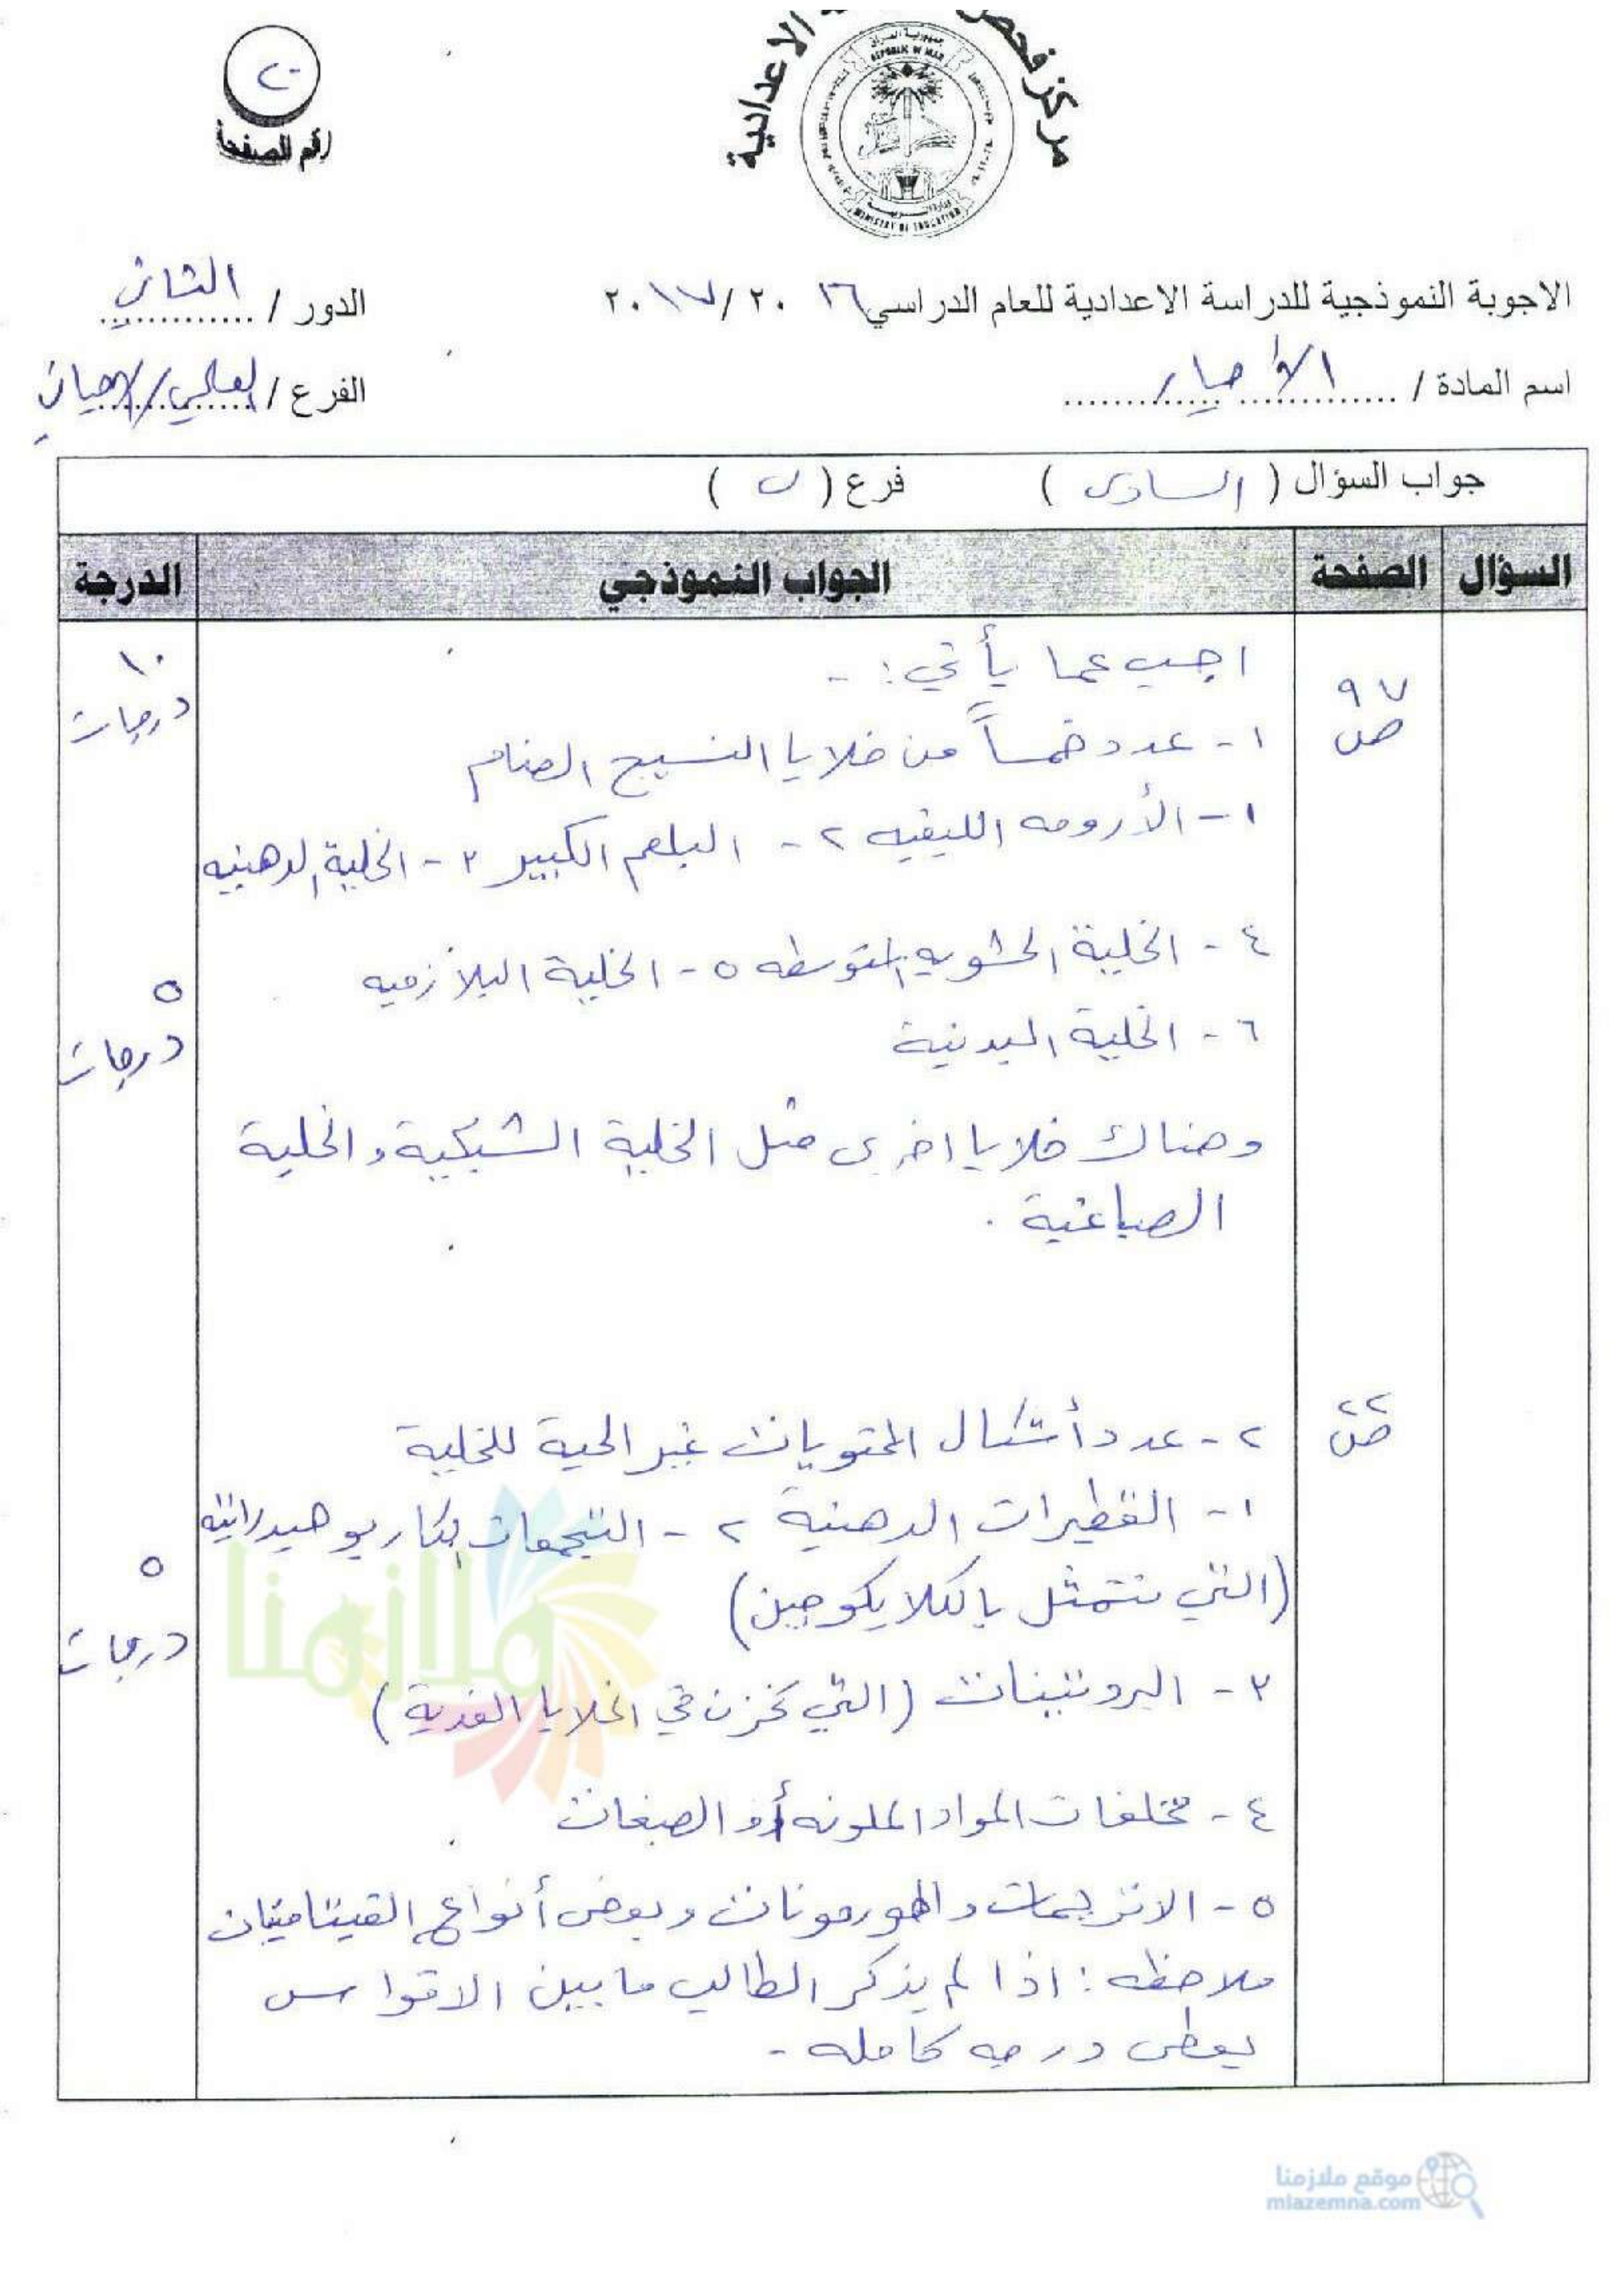 مركز فحص
الاعدادية
جمهورية العراق
REPUBLIC OF IRAQ
وزارة التربية
MINISTRY OF EDUCATION
٢٠
رقم الصفحة
الاجوبة النموذجية للدراسة الاعدادية للعام الدراسي ٢٠١٦ / ٢٠١٧
الدور / الثاني
اسم المادة / الأحياء
الفرع / العلمي / الاحيائي
جواب السؤال ( السادس ) فرع ( ب )
السؤال الصفحة الجواب النموذجي الدرجة
اجب عما يأتي : -
١٠ درجات
ص ٩٧
١ - عدد خمساً من خلايا النسيج الضام
١ - الأرومه الليفيه ٢ - البلعم الكبير ٣ - الخلية الدهنيه
٤ - الخلية الحشويه المتوسطه ٥ - الخلية البلازميه
٥ درجات
٦ - الخلية البدنية
وهناك خلايا اخرى مثل الخلية الشبكية والخلية
الصباغية .
ص ٢٢
٢ - عدد أشكال المحتويات غير الحية للخلية
١ - القطيرات الدهنية ٢ - التجمعات الكاربوهيدراتيه
(التي تتمثل بالكلايكوجين)
٥ درجات
٣ - البروتينات (التي تخزن في الخلايا الغدية)
٤ - مخلفات المواد الملونه أو الصبغات
٥ - الانزيمات والهورمونات وبعض أنواع الفيتامينات
ملاحظه : اذا لم يذكر الطالب ما بين الاقواس
يعطى درجه كامله -
ملازمنا
موقع ملازمنا
mlazemna.com